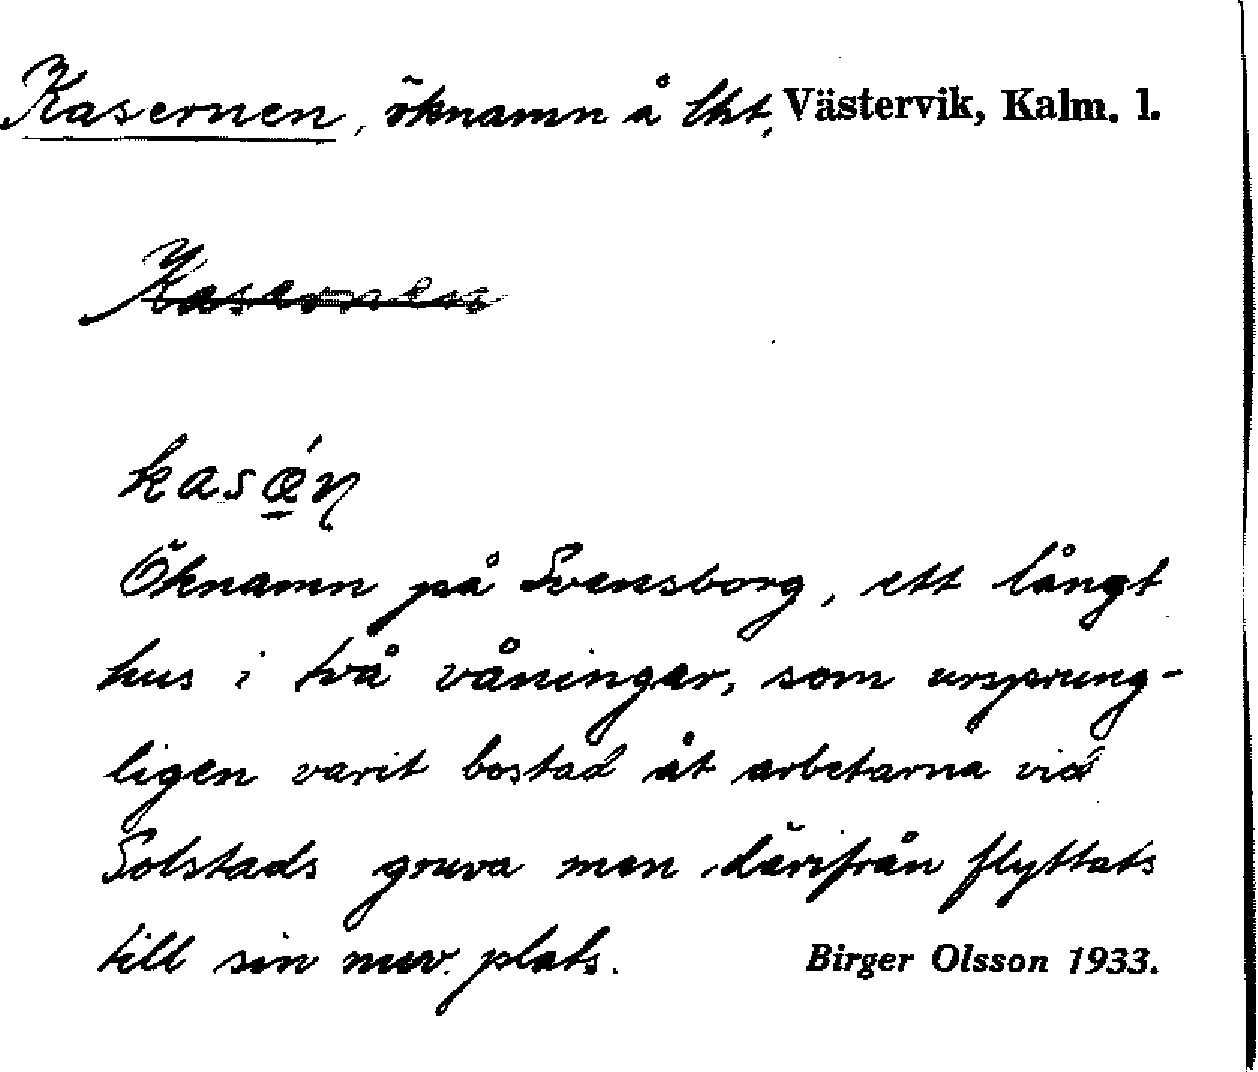 Kasernen, öknamn å lht, Västervik, Kalm. l.
Kasernen
kasǿn
Öknamn på Svensborg, ett långt
hus i två våningar, som ursprung-
ligen varit bostad åt arbetarna vid
Solstads gruva men därifrån flyttats
till sin nuv. plats. Birger Olsson 1933.